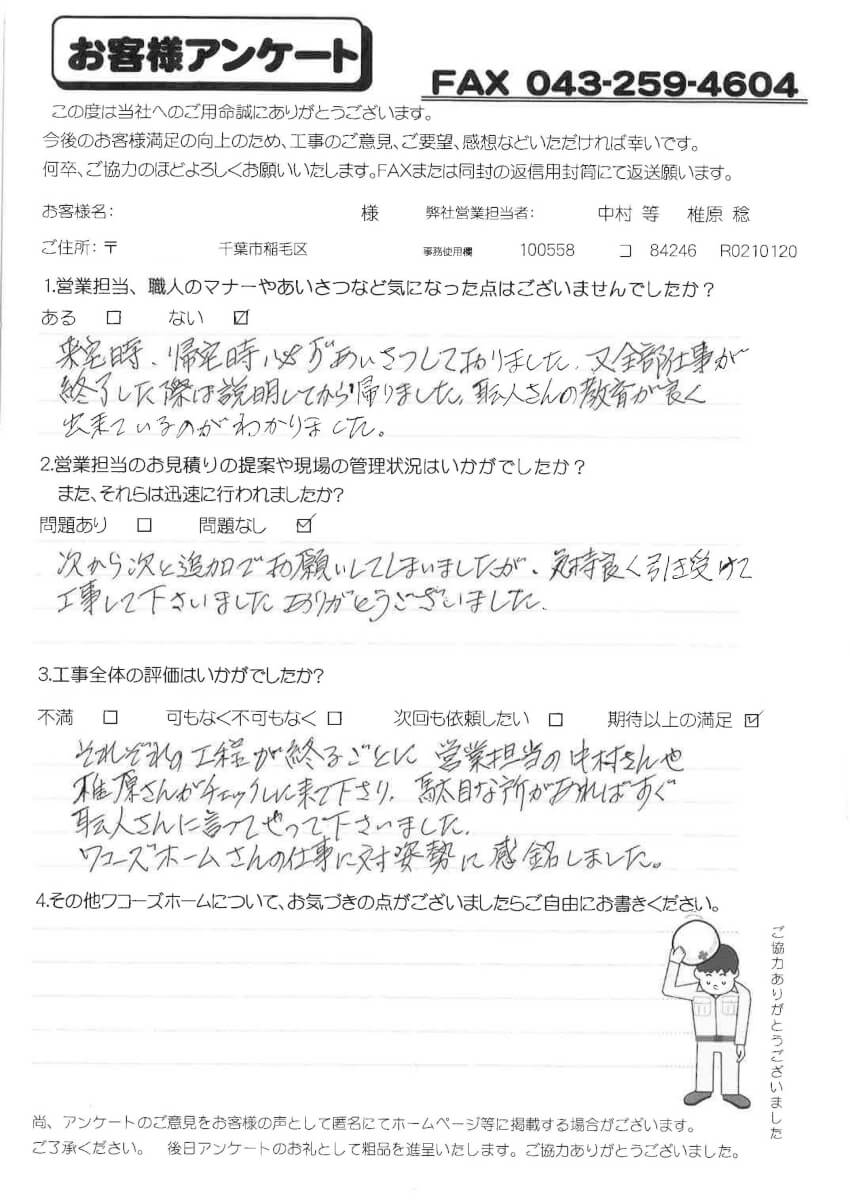 お客様アンケート
FAX 043-259-4604
この度は当社へのご用命誠にありがとうございます。
今後のお客様満足の向上のため、工事のご意見、ご要望、感想などいただければ幸いです。
何卒、ご協力のほどよろしくお願いいたします。FAXまたは同封の返信用封筒にて返送願います。
お客様名: 様 弊社営業担当者: 中村 等 椎原 稔
ご住所:〒 千葉市稲毛区 事務使用欄 100558 コ 84246 R0210120
1.営業担当、職人のマナーやあいさつなど気になった点はございませんでしたか?
ある □ ない ☑
来宅時、帰宅時必ずあいさつしておりました。又全部仕事が
終了した際は説明してから帰りました。職人さんの教育が良く
出来ているのがわかりました。
2.営業担当のお見積りの提案や現場の管理状況はいかがでしたか?
また、それらは迅速に行われましたか?
問題あり □ 問題なし ☑
次から次と追加でお願いしてしまいましたが、気持良く引き受けて
工事して下さいました ありがとうございました.
3.工事全体の評価はいかがでしたか?
不満 □ 可もなく不可もなく □ 次回も依頼したい □ 期待以上の満足 ☑
それぞれの工程が終るごとに 営業担当の中村さんや
椎原さんがチェックしに来て下さり、駄目な所があればすぐ
職人さんに言ってやって下さいました.
ワコーズホームさんの仕事に対す姿勢に感銘しました。
4.その他ワコーズホームについて、お気づきの点がございましたらご自由にお書きください。
ご協力ありがとうございました
尚、アンケートのご意見をお客様の声として匿名にてホームページ等に掲載する場合がございます。
ご了承ください。 後日アンケートのお礼として粗品を進呈いたします。ご協力ありがとうございました。